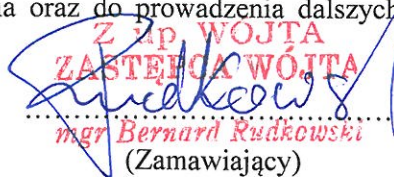 na oraz do prowadzenia dalszych
Z up. WÓJTA
ZASTĘPCA WÓJTA
Rudkows
mgr Bernard Rudkowski
(Zamawiający)